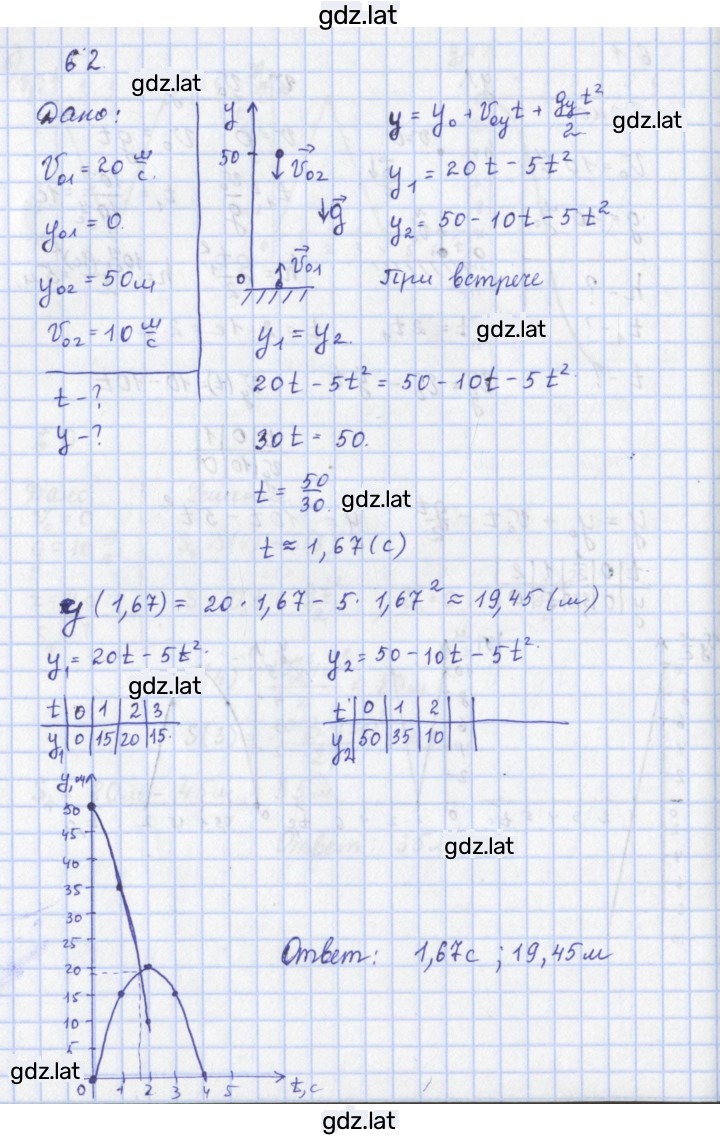 gdz.lat
62.
gdz.lat
Дано:
V₀₁ = 20 м/с.
y₀₁ = 0.
y₀₂ = 50 м
V₀₂ = 10 м/с
t - ?
y - ?
y
50
V⃗₀₂
g⃗
V⃗₀₁
0
y = y₀ + V₀yt + gyt²/2
gdz.lat
y₁ = 20t - 5t²
y₂ = 50 - 10t - 5t²
При встрече
y₁ = y₂.
gdz.lat
20t - 5t² = 50 - 10t - 5t²
30t = 50.
t = 50/30.
gdz.lat
t ≈ 1,67 (с)
y (1,67) = 20 · 1,67 - 5 · 1,67² ≈ 19,45 (м)
y₁ = 20t - 5t².
y₂ = 50 - 10t - 5t².
gdz.lat
t 0 1 2 3
y₁ 0 15 20 15.
t 0 1 2
y₂ 50 35 10
y, м
50
45
40
35
30
25
20
15
10
5
gdz.lat
Ответ: 1,67 с ; 19,45 м
gdz.lat
0 1 2 3 4 5 t, с
gdz.lat